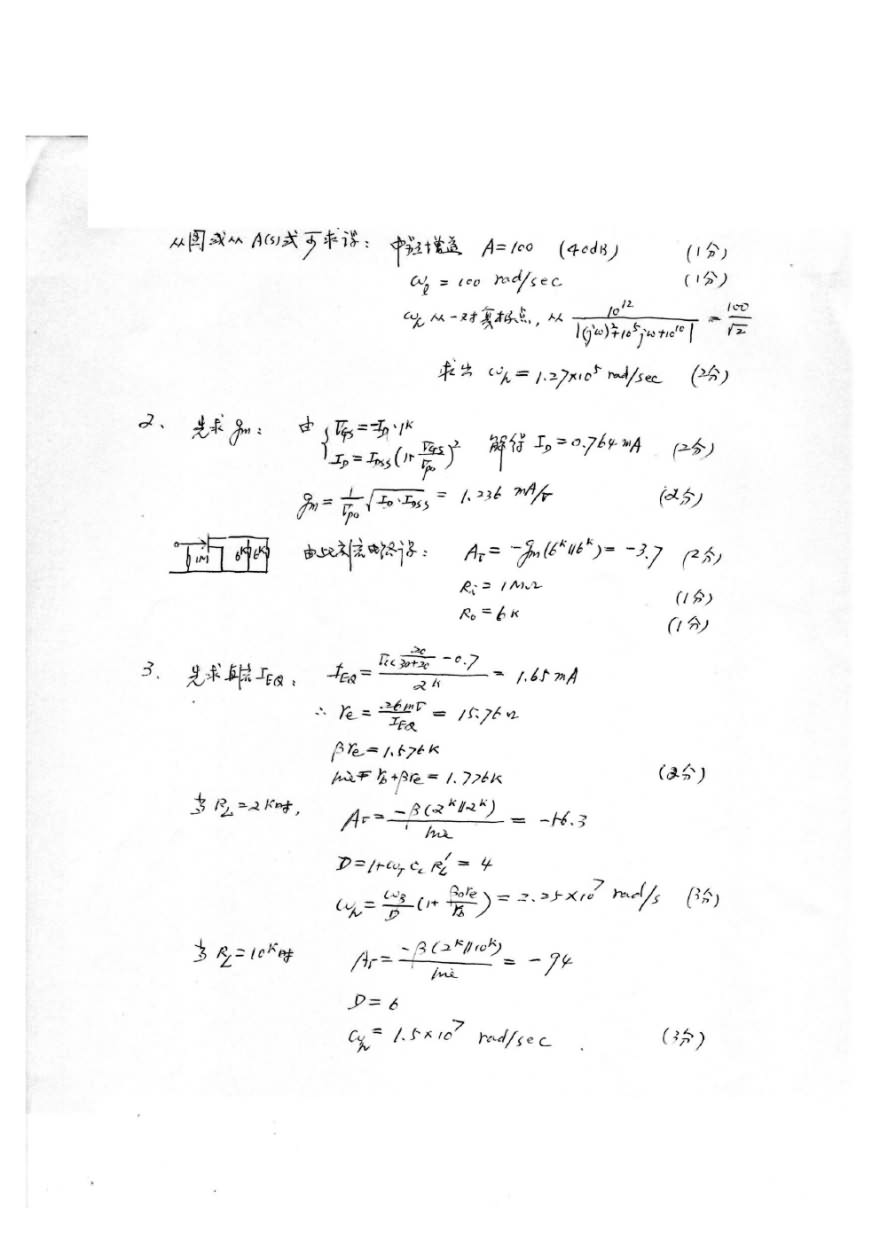 从图或从 A(s)式可求得: 中频增益 A=100 (40dB) (1分)
ω_l = 100 rad/sec (1分)
ω_h 从一对复极点, 从 10^12 / |(jω)^2+10^5jω+10^10| = 100/√2
求出 ω_h=1.27×10^5 rad/sec (2分)
2、 先求 gm: 由 { V_GS=-I_D·1K
I_D=I_DSS(1+V_GS/V_po)^2 解得 I_D=0.764mA (2分)
gm=1/V_po √(I_D·I_DSS) = 1.236 mA/V (2分)
1M 6K 6K 由 电路得: A_V= -gm(6K∥6K)= -3.7 (2分)
R_i = 1MΩ (1分)
R_o = 6K (1分)
3. 先求 I_EQ: I_EQ= (V_CC 20/(30+20) -0.7) / 2K = 1.65mA
∴ re = 26mV/I_EQ = 15.76Ω
βre=1.576K
hie= r_b+βre=1.776K (2分)
当 R_L=2K时, A_V= -β(2K∥2K)/hie = -56.3
D=1+ω_T C_c R_L'=4
ω_h= ω_β/D (1+ β_0re/r_b)=2.25×10^7 rad/s (3分)
当 R_L=10K时 A_V= -β(2K∥10K)/hie = -94
D=6
ω_h= 1.5×10^7 rad/sec. (3分)